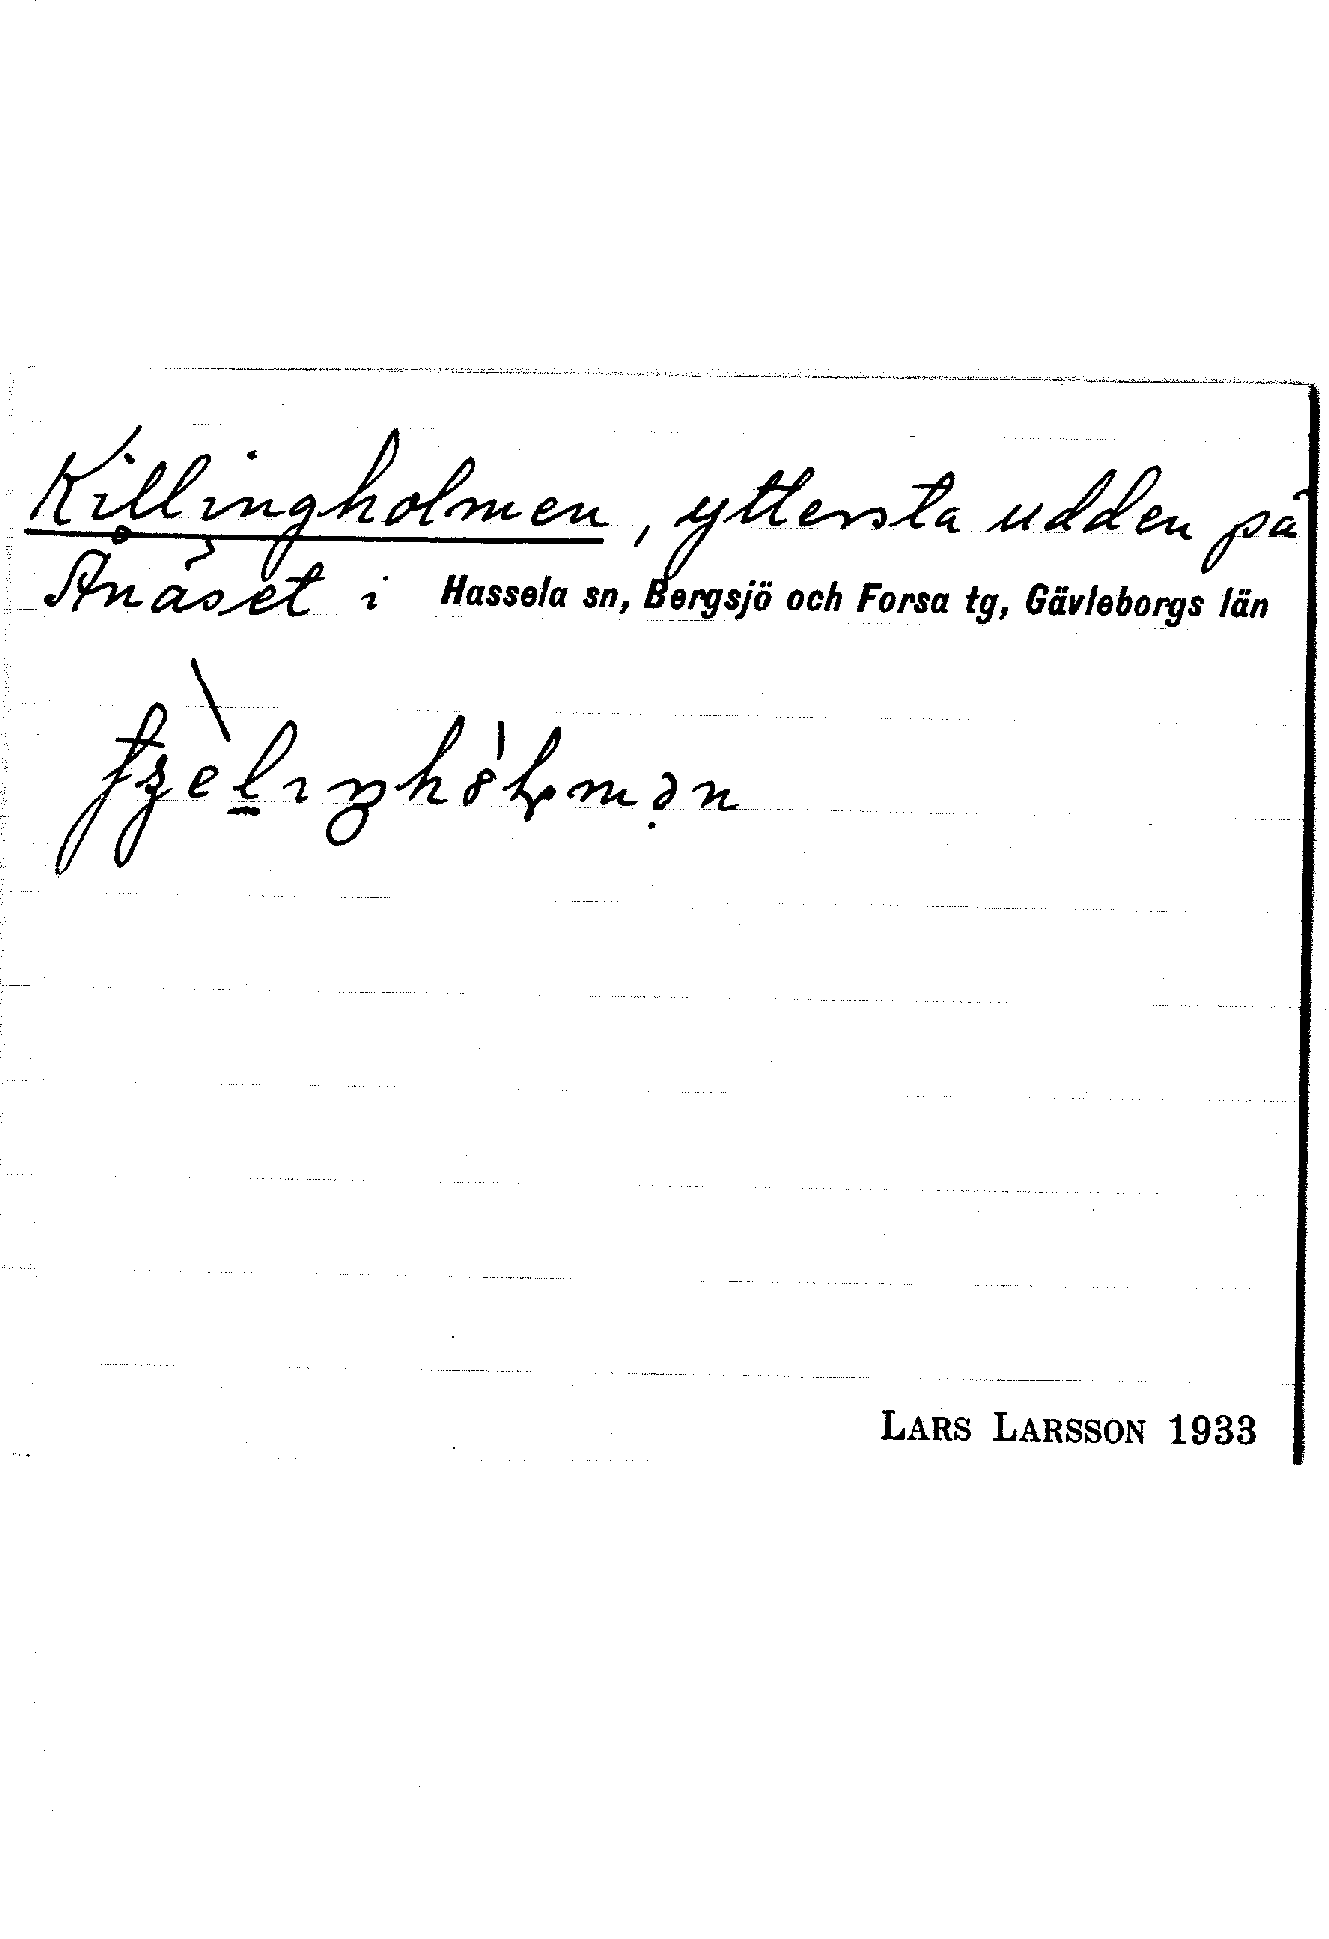 Killingholmen, yttersta udden på
Ånäset i Hassela sn, Bergsjö och Forsa tg, Gävleborgs län
LARS LARSSON 1933